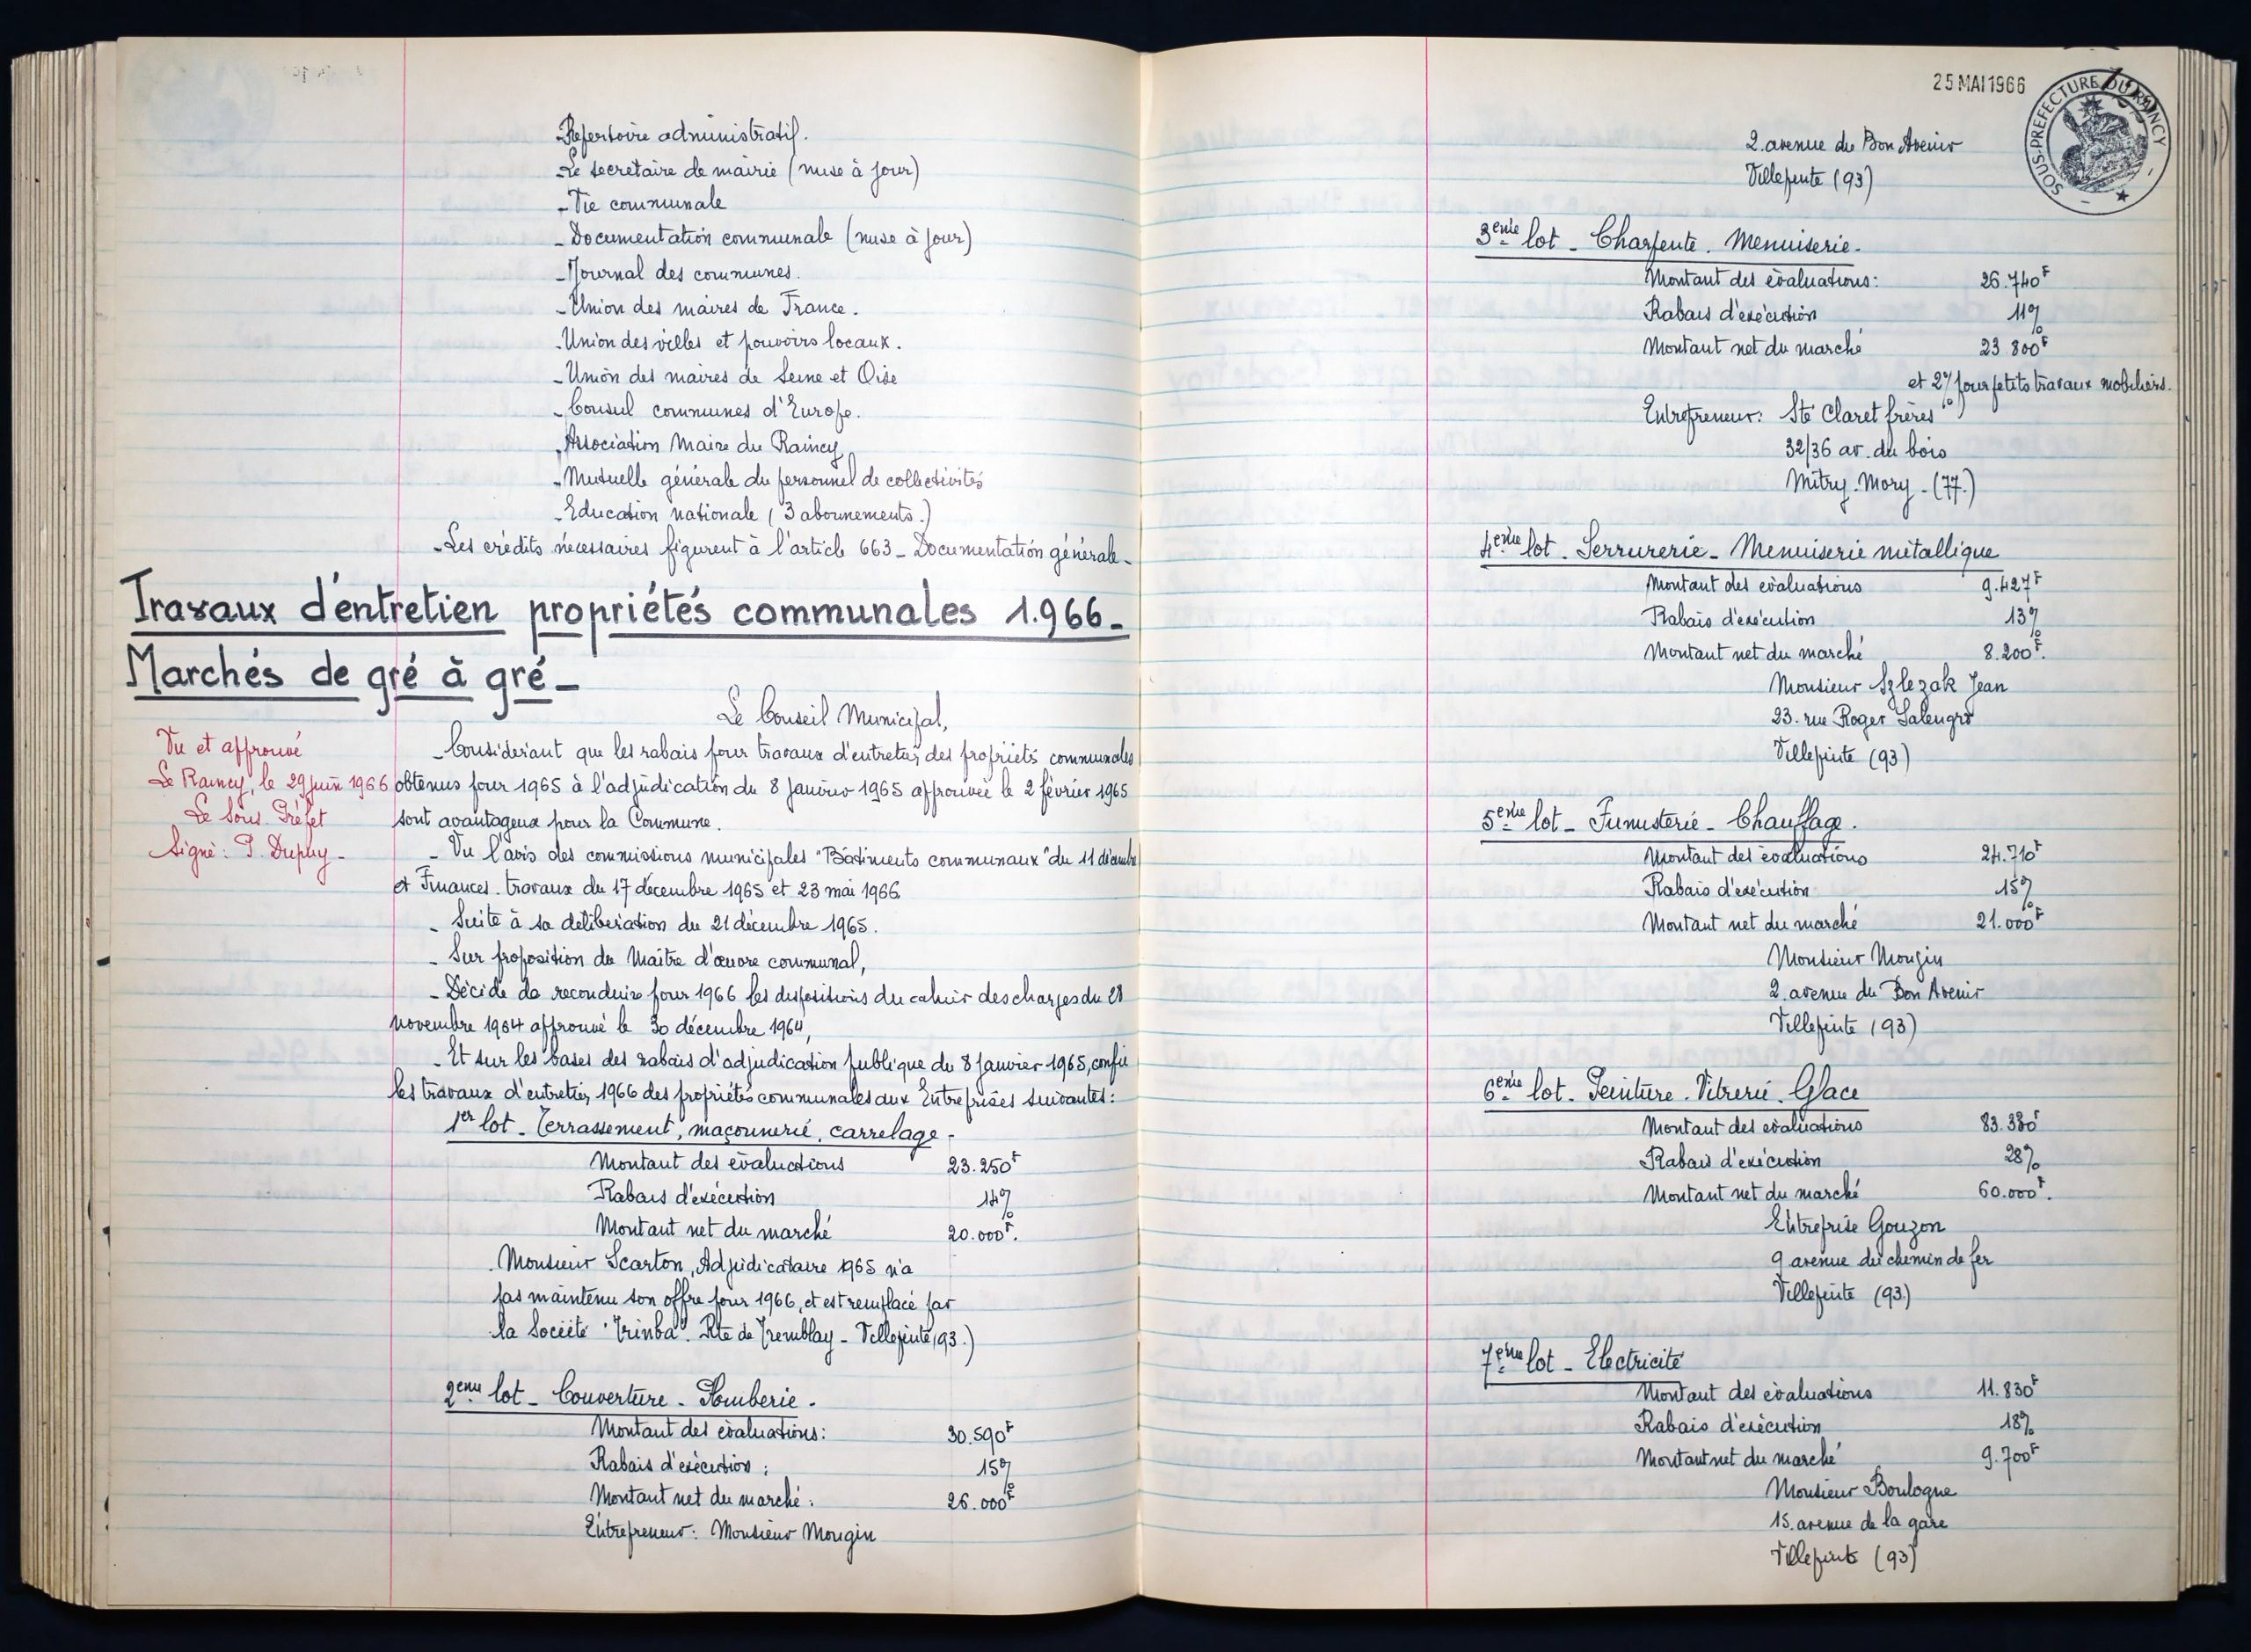 Répertoire administratif.
-Le secrétaire de mairie (mise à jour)
-Vie communale
-Documentation communale (mise à jour)
-Journal des communes.
-Union des maires de France.
-Union des villes et pouvoirs locaux.
-Union des maires de Seine et Oise
-Conseil communes d'Europe.
-Association Maire du Raincy
-Mutuelle générale du personnel de collectivités
-Education nationale (3 abonnements.)
-Les crédits nécessaires figurent à l'article 663-Documentation générale-
Travaux d'entretien propriétés communales 1.966-
Marchés de gré à gré-
Le Conseil Municipal,
Vu et approuvé
Le Raincy, le 29 juin 1966
Le Sous-Préfet
Signé: P. Dupuy-
-Considérant que les rabais pour travaux d'entretien des propriétés communales
obtenus pour 1965 à l'adjudication du 8 Janvier 1965 approuvée le 2 février 1965
sont avantageux pour la Commune.
-Vu l'avis des commissions municipales "Bâtiments communaux" du 11 décembre
et Finances-travaux du 17 décembre 1965 et 23 mai 1966
-Suite à sa délibération du 21 décembre 1965.
-Sur proposition du Maître d'œuvre communal,
-Décide de reconduire pour 1966 les dispositions du cahier des charges du 28
novembre 1964 approuvé le 30 décembre 1964,
-Et sur les bases des rabais d'adjudication publique du 8 Janvier 1965, confie
les travaux d'entretien 1966 des propriétés communales aux Entreprises suivantes:
1er lot-Terrassement, maçonnerie, carrelage-
Montant des évaluations 23.250F
Rabais d'exécution 14%
Montant net du marché 20.000F.
-Monsieur Scarton, Adjudicataire 1965 n'a
pas maintenu son offre pour 1966, et est remplacé par
la Société "Trinba". Rte de Tremblay-Villepinte (93.)
2ème lot-Couverture-Plomberie.
Montant des évaluations: 30.590F
Rabais d'exécution: 15%
Montant net du marché: 26.000F
Entrepreneur: Monsieur Mougin
25 MAI 1966
SOUS-PREFECTURE DU RAINCY
2.avenue du Bon Avenir
Villepinte (93)
3ème lot-Charpente. Menuiserie.
Montant des évaluations: 26.740F
Rabais d'exécution 11%
Montant net du marché 23.800F
et 2% pour petits travaux mobiliers.
Entrepreneur: Sté Claret frères
32/36 av. du bois
Mitry-Mory-(77.)
4ème lot-Serrurerie-Menuiserie métallique
Montant des évaluations 9.427F
Rabais d'exécution 13%
Montant net du marché 8.200F.
Monsieur Szlezak Jean
23.rue Roger Salengro
Villepinte (93)
5ème lot-Fumisterie-Chauffage.
Montant des évaluations 24.710F
Rabais d'exécution 15%
Montant net du marché 21.000F
Monsieur Mougin
2.avenue du Bon Avenir
Villepinte (93)
6ème lot-Peinture-Vitrerie-Glace
Montant des évaluations 83.330F
Rabais d'exécution 28%
Montant net du marché 60.000F.
Entreprise Gouzon
9 avenue du chemin de fer
Villepinte (93.)
7ème lot-Electricité
Montant des évaluations 11.830F
Rabais d'exécution 18%
Montant net du marché 9.700F
Monsieur Boulogne
15.avenue de la gare
Villepinte (93)